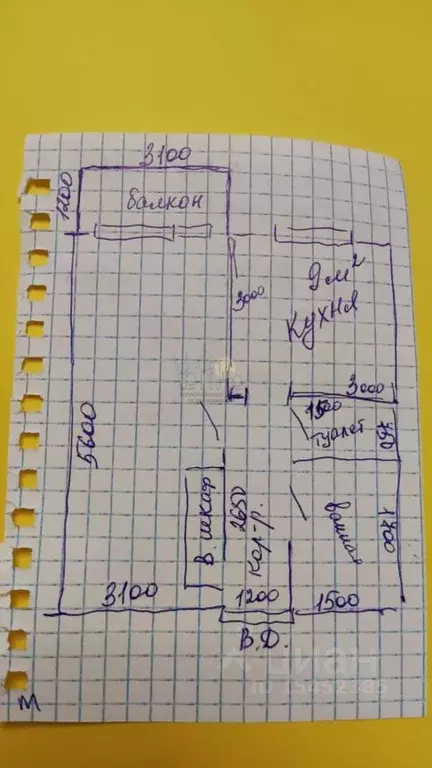 3100
1200
балкон
9м²
кухня
3000
3000
1500
туалет
750
5600
В шкаф
2650
Кор-р.
ванная
1700
3100
1200
1500
В.Д.
М
циан
ID 15452385